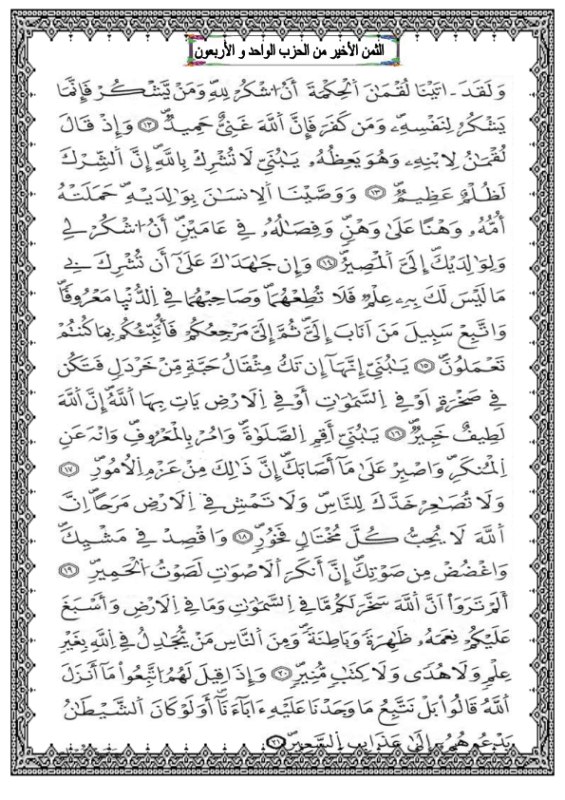 الثمن الأخير من الحزب الواحد و الأربعون
وَلَقَدَ اٰتَيْنَا لُقْمَٰنَ اَ۬لْحِكْمَةَ أَنُ اُ۟شْكُرْ لِلهِ وَمَنْ يَّشْكُرْ فَإِنَّمَا
يَشْكُرُ لِنَفْسِهِۦ وَمَن كَفَرَ فَإِنَّ اَ۬للَّهَ غَنِيٌّ حَمِيدٞ ۝١٢ وَإِذْ قَالَ
لُقْمَٰنُ لِابْنِهِۦ وَهُوَ يَعِظُهُۥ يَٰبُنَيِّ لَا تُشْرِكْ بِاللَّهِ إِنَّ اَ۬لشِّرْكَ
لَظُلْمٌ عَظِيمٞ ۝١٣ وَوَصَّيْنَا اَ۬لِانسَٰنَ بِوَٰلِدَيْهِ حَمَلَتْهُ
أُمُّهُۥ وَهْناً عَلَىٰ وَهْنٖ وَفِصَٰلُهُۥ فِي عَامَيْنِ أَنُ اُ۟شْكُرْ لِے
وَلِوَٰلِدَيْكَ إِلَيَّ اَ۬لْمَصِيرُ ۝١٤ وَإِن جَٰهَدَٰكَ عَلَىٰ أَن تُشْرِكَ بِے
مَا لَيْسَ لَكَ بِهِۦ عِلْمٞ فَلَا تُطِعْهُمَا وَصَاحِبْهُمَا فِي اِ۬لدُّنْيَا مَعْرُوفاٗ
وَاتَّبِعْ سَبِيلَ مَنَ اَنَابَ إِلَيَّ ثُمَّ إِلَيَّ مَرْجِعُكُمْ فَأُنَبِّئُكُم بِمَا كُنتُمْ
تَعْمَلُونَ ۝١٥ يَٰبُنَيِّ إِنَّهَا إِن تَكُ مِثْقَالُ حَبَّةٖ مِّنْ خَرْدَلٖ فَتَكُن
فِي صَخْرَةٍ اَوْ فِي اِ۬لسَّمَٰوَٰتِ أَوْ فِي اِ۬لَارْضِ يَاتِ بِهَا اَ۬للَّهُ إِنَّ اَ۬للَّهَ
لَطِيفٌ خَبِيرٞ ۝١٦ يَٰبُنَيِّ أَقِمِ اِ۬لصَّلَوٰةَ وَامُرْ بِالْمَعْرُوفِ وَانْهَ عَنِ
اِ۬لْمُنكَرِ وَاصْبِرْ عَلَىٰ مَا أَصَابَكَ إِنَّ ذَٰلِكَ مِنْ عَزْمِ اِ۬لُامُورِ ۝١٧
وَلَا تُصَٰعِرْ خَدَّكَ لِلنَّاسِ وَلَا تَمْشِ فِي اِ۬لَارْضِ مَرَحاً اِنَّ
اَ۬للَّهَ لَا يُحِبُّ كُلَّ مُخْتَالٖ فَخُورٖ ۝١٨ وَاقْصِدْ فِي مَشْيِكَ
وَاغْضُضْ مِن صَوْتِكَ إِنَّ أَنكَرَ اَ۬لَاصْوَٰتِ لَصَوْتُ اُ۬لْحَمِيرِ ۝١٩
أَلَمْ تَرَوَاْ اَنَّ اَ۬للَّهَ سَخَّرَ لَكُم مَّا فِي اِ۬لسَّمَٰوَٰتِ وَمَا فِي اِ۬لَارْضِ وَأَسْبَغَ
عَلَيْكُمْ نِعَمَهُۥ ظَٰهِرَةٗ وَبَاطِنَةٗ وَمِنَ اَ۬لنَّاسِ مَنْ يُّجَٰدِلُ فِي اِ۬للَّهِ بِغَيْرِ
عِلْمٖ وَلَا هُدىٗ وَلَا كِتَٰبٖ مُّنِيرٖ ۝٢٠ وَإِذَا قِيلَ لَهُمُ اُ۪تَّبِعُواْ مَا أَنزَلَ
اَ۬للَّهُ قَالُواْ بَلْ نَتَّبِعُ مَا وَجَدْنَا عَلَيْهِ ءَابَآءَنَا أَوَلَوْ كَانَ اَ۬لشَّيْطَٰنُ
يَدْعُوهُمُۥ إِلَىٰ عَذَابِ اِ۬لسَّعِيرِ ۝٢١